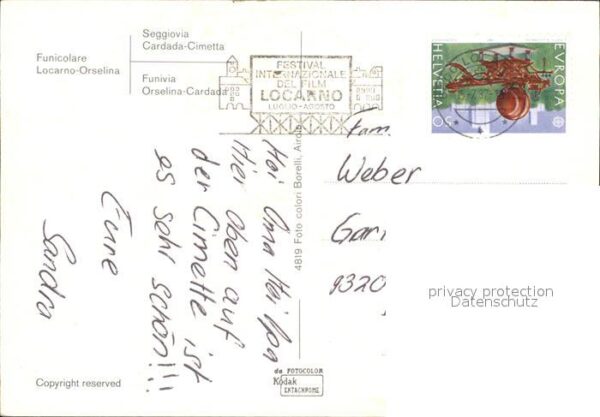 Funicolare
Locarno-Orselina
Seggiovia
Cardada-Cimetta
Funivia
Orselina-Cardada
FESTIVAL
INTERNAZIONALE
DEL FILM
LOCARNO
LUGLIO-AGOSTO
HELVETIA 50
EUROPA
Hoi Oma Hoi Opa
Hier oben auf
der Cimette ist
es sehl schön!!!
Eure
Sandra
4819 Foto colori Borelli, Airolo
Fam.
Weber
Gar
9320
privacy protection
Datenschutz
da FOTOCOLOR
Kodak
EKTACHROME
Copyright reserved